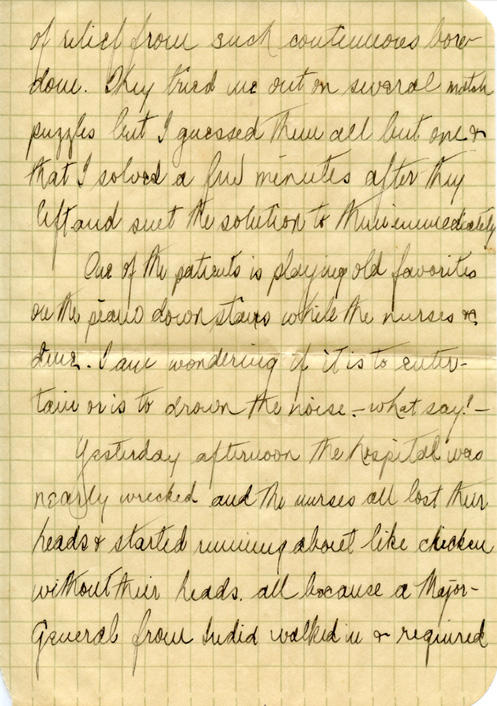 of relief from such continuous bore-
dom. They tried me out on several match
puzzles but I guessed them all but one &
that I solved a few minutes after they
left and sent the solution to them immediately
One of the patients is playing old favorites
on the piano down stairs while the nurses
dine. I am wondering if it is to enter-
tain or is to drown the noise - what say! -
Yesterday afternoon the hospital was
nearly wrecked and the nurses all lost their
heads & started running about like chicken
without their heads. all because a Major-
General from walked in & required